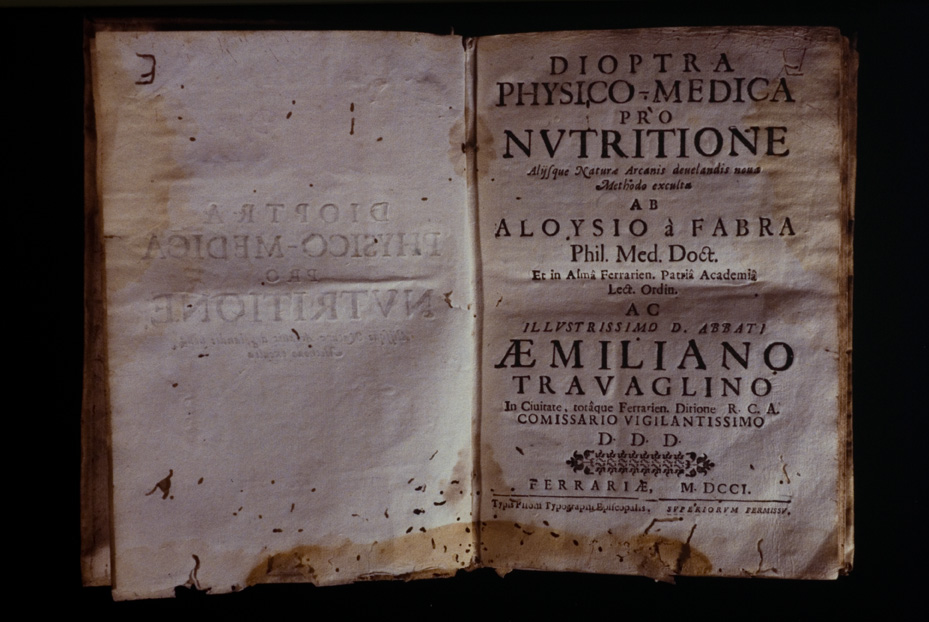 3
DIOPTRA
PHYSICO-MEDICA
PRO
NVTRITIONE
DIOPTRA
PHYSICO-MEDICA
PRO
NVTRITIONE
Alijsque Naturæ Arcanis deuelandis noua
Methodo exculta
AB
ALOYSIO à FABRA
Phil. Med. Doct.
Et in Almâ Ferrarien. Patriâ Academiâ
Lect. Ordin.
AC
ILLVSTRISSIMO D. ABBATI
ÆMILIANO
TRAVAGLINO
In Ciuitate, totâque Ferrarien. Ditione R. C. A.
COMISSARIO VIGILANTISSIMO
D. D. D.
FERRARIÆ, M. DCCI.
Typographi Episcopalis, SVPERIORVM PERMISSV.